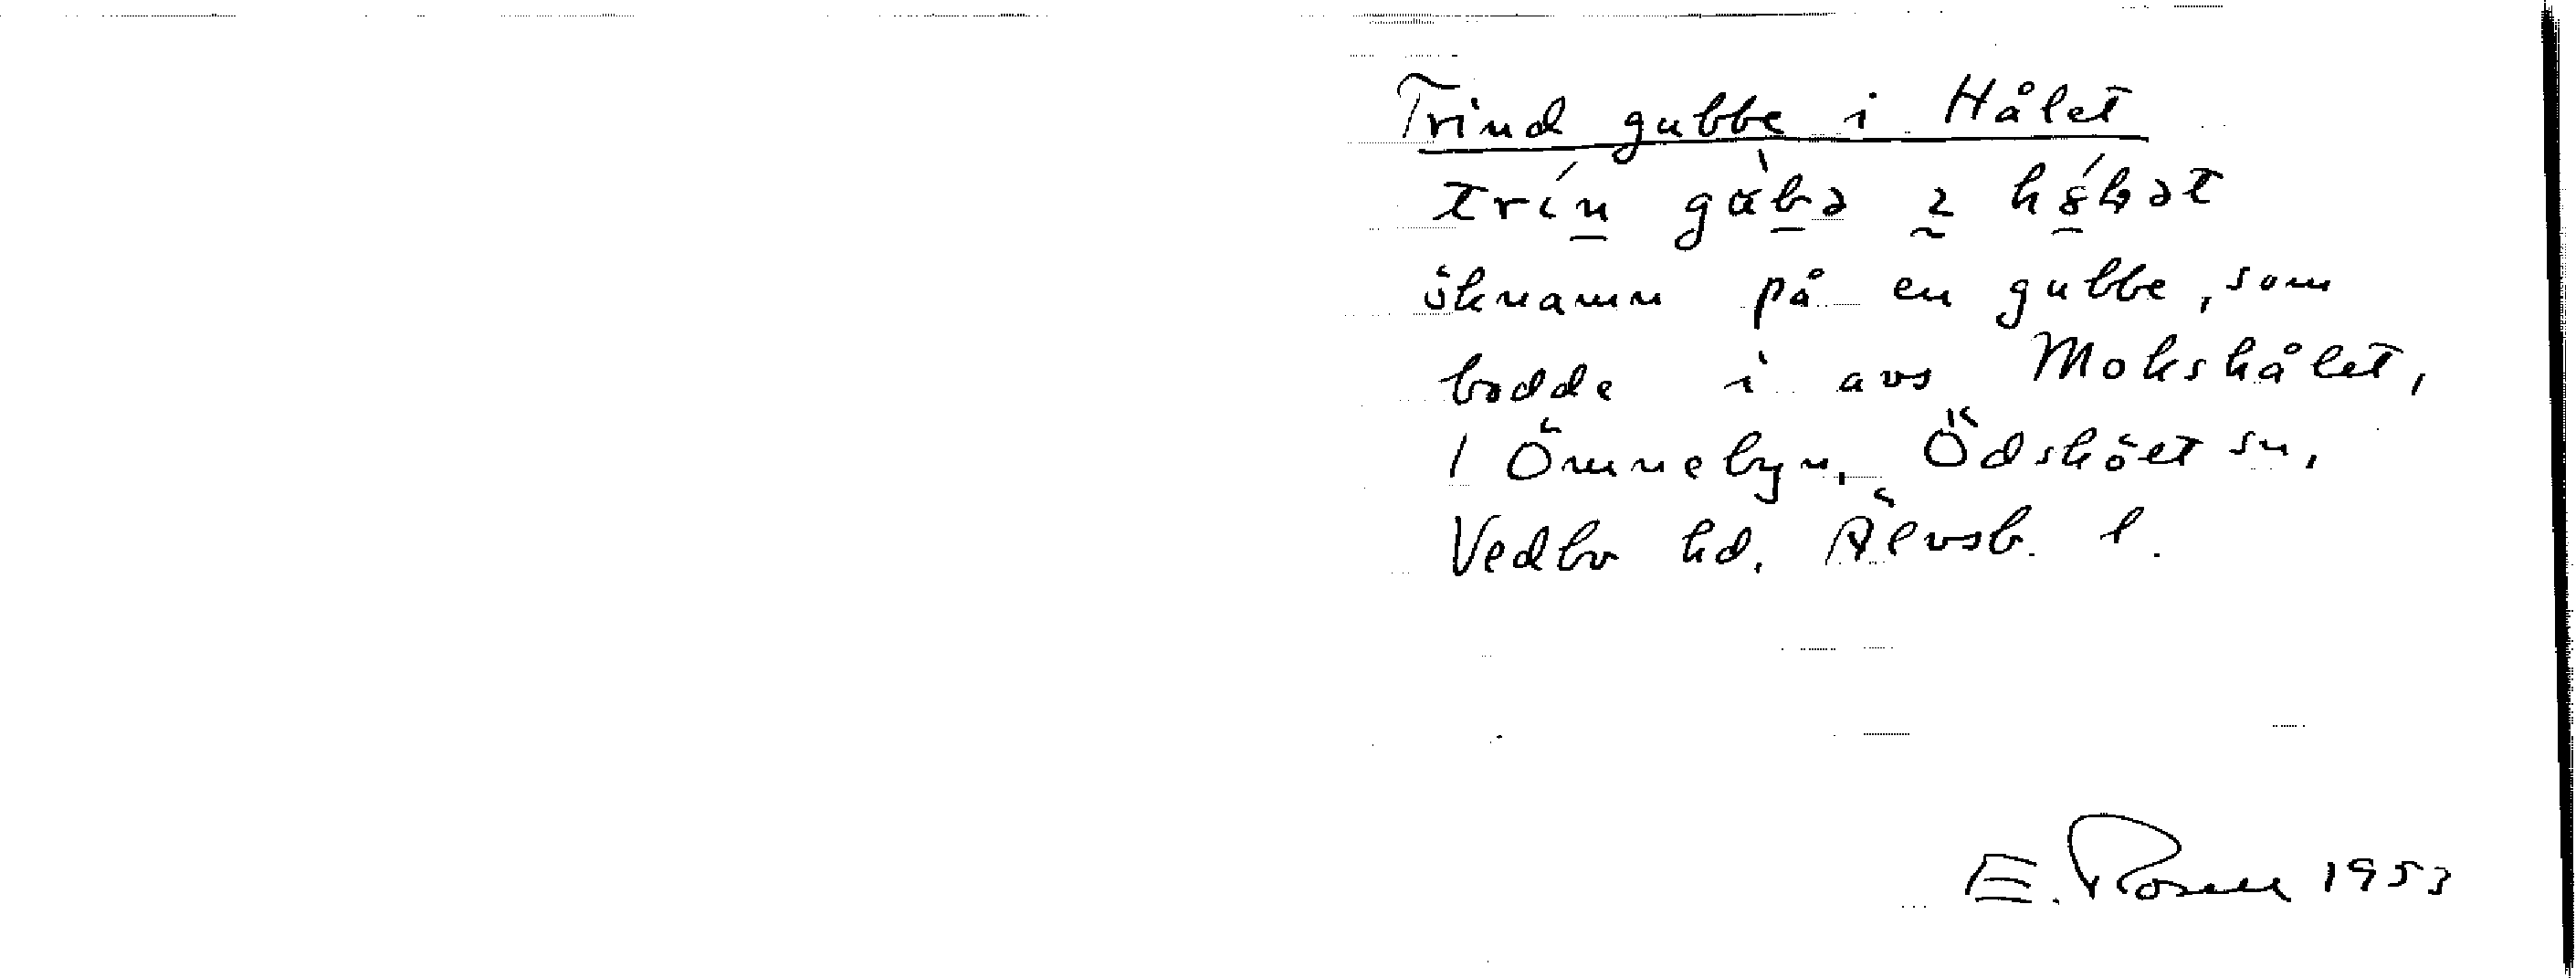 Trind gubbe i Hålet
öknamn på en gubbe, som
bodde i avs Mokshålet,
i Ömnebyn, Ödsköet sn,
Vedbo hd. Älvsb. l.
E. Rosell 1953